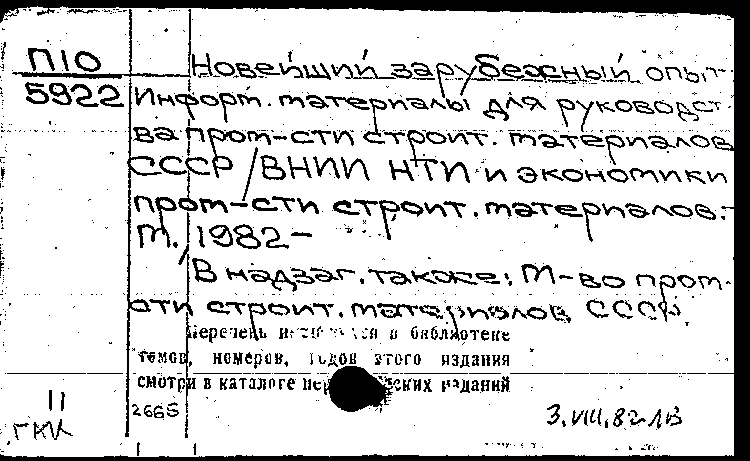 П10
5922
Новейший зарубежный опыт
Информ. материалы для руководст
ва пром-сти строит. материалов
СССР / ВНИИ НТИ и экономики
пром-сти строит. материалов. -
М., 1982 -
В надзаг. также: М-во пром-
сти строит. материалов СССР.
Перечень в библиотеке
томов, номеров, годов этого издания
смотри в каталоге изданий
11
2665
3.VIII.82